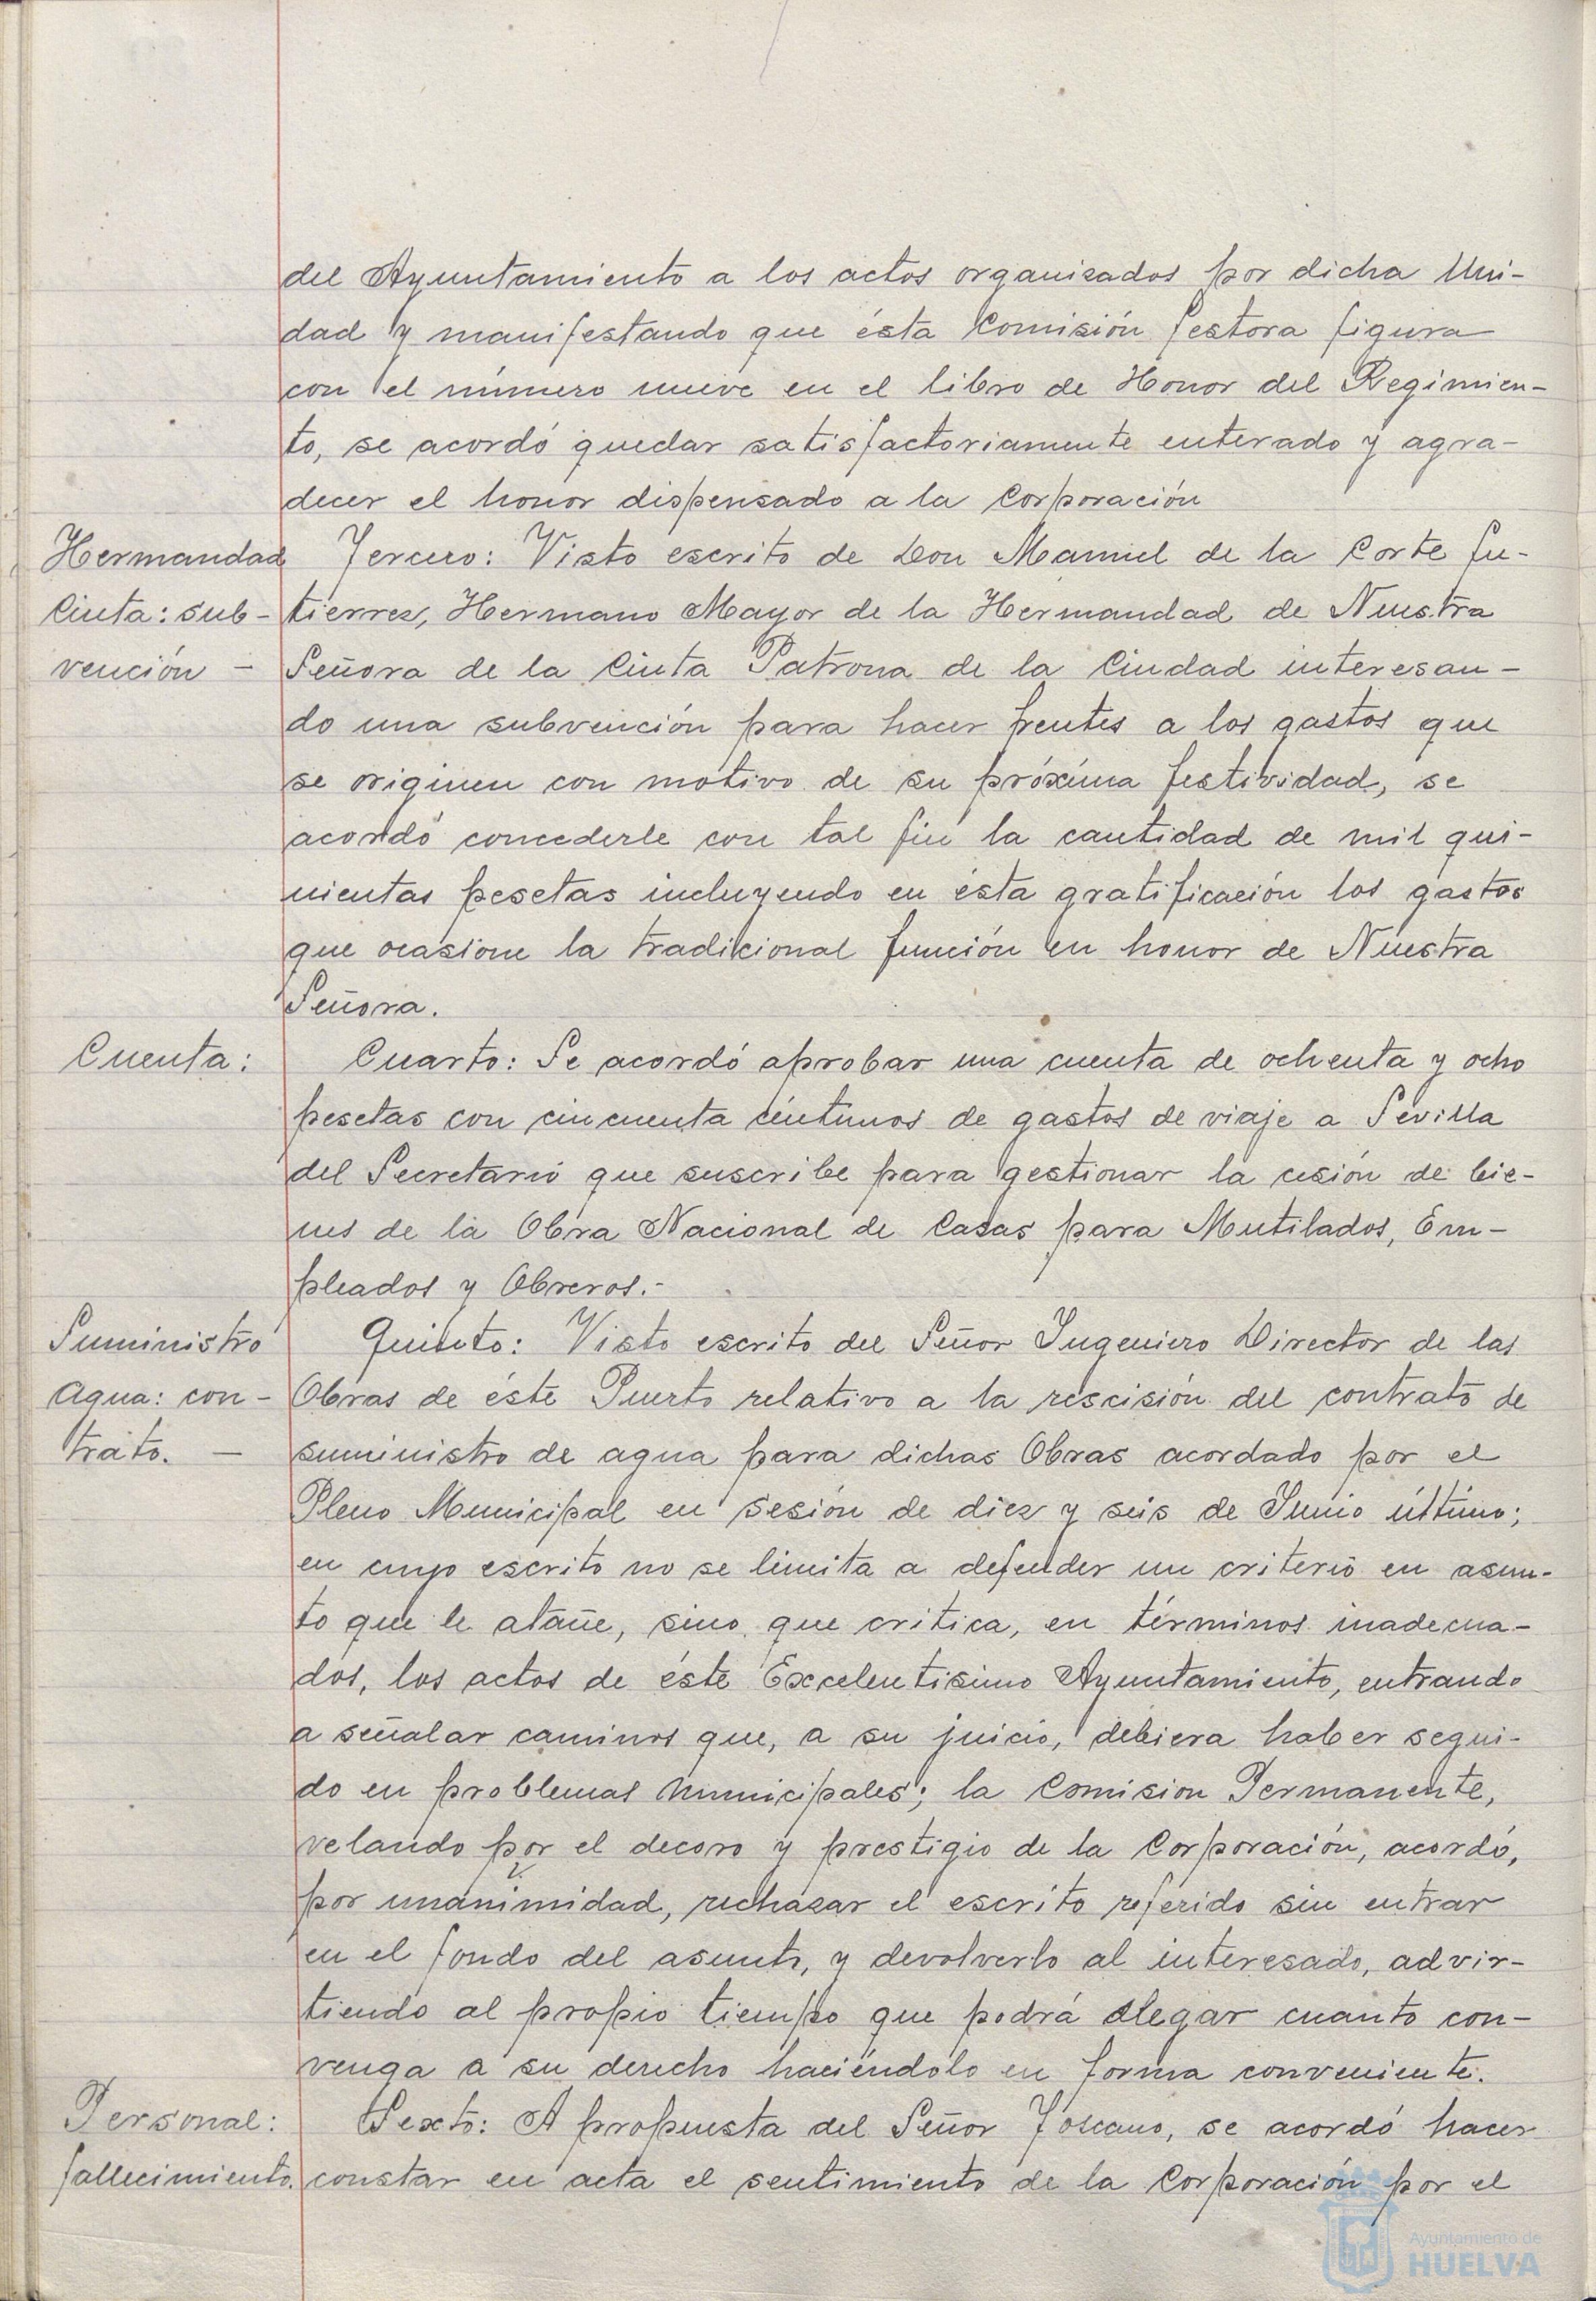 del Ayuntamiento a los actos organizados por dicha Uni-
dad y manifestando que ésta Comisión Gestora figura
con el número nueve en el libro de Honor del Regimien-
to, se acordó quedar satisfactoriamente enterado y agra-
decer el honor dispensado a la Corporación
Hermandad
Cinta: sub-
vención -
Tercero: Visto escrito de Don Manuel de la Corte Gu-
tierrez, Hermano Mayor de la Hermandad de Nuestra
Señora de la Cinta Patrona de la Ciudad interesan-
do una subvención para hacer frentes a los gastos que
se originen con motivo de su próxima festividad, se
acordó concederle con tal fin la cantidad de mil qui-
nientas pesetas incluyendo en ésta gratificación los gastos
que ocasione la tradicional función en honor de Nuestra
Señora.
Cuenta:
Cuarto: Se acordó aprobar una cuenta de ochenta y ocho
pesetas con cincuenta céntimos de gastos de viaje a Sevilla
del Secretario que suscribe para gestionar la cesión de bie-
nes de la Obra Nacional de Casas para Mutilados, Em-
pleados y Obreros.-
Suministro
Agua: con-
trato. -
Quinto: Visto escrito del Señor Ingeniero Director de las
Obras de éste Puerto relativo a la rescisión del contrato de
suministro de agua para dichas Obras acordado por el
Pleno Municipal en sesión de diez y seis de Junio último;
en cuyo escrito no se limita a defender un criterio en asun-
to que le atañe, sino que critica, en términos inadecua-
dos, los actos de éste Excelentisimo Ayuntamiento, entrando
a señalar caminos que, a su juicio, debiera haber segui-
do en problemas municipales; la Comision Permanente,
velando por el decoro y prestigio de la Corporación, acordó,
por unanimidad, rechazar el escrito referido sin entrar
en el fondo del asunto, y devolverlo al interesado, advir-
tiendo al propio tiempo que podrá alegar cuanto con-
venga a su derecho haciéndolo en forma conveniente.
Personal:
fallecimiento.
Sexto: A propuesta del Señor Toscano, se acordó hacer
constar en acta el sentimiento de la Corporación por el
Ayuntamiento de
HUELVA